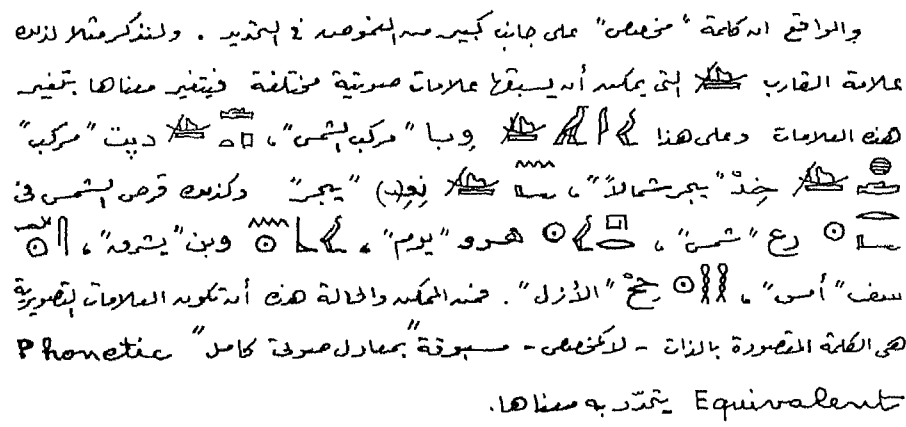 والواقع أن كلمة "مخصص" على جانب كبير من الغموض في التحديد . ولنذكر مثلا لذلك
علامة القارب التى يمكن أن يسبقها علامات صوتية مختلفة فيتغير معناها بتغير
هذه العلامات وعلى هذا وبا "مركب الشمس"، دپت "مركب"
خِدْ "يبحر شمالاً"، نِعِ(ـ) "يبحر" وكذلك قرص الشمس فى
رع "شمس"، هـرو "يوم"، وبن "يشرق"،
سف "أمس"، حِحْ "الأزل". فمن الممكن والحالة هذه أن تكون العلامات التصويرية
هى الكلمة المقصودة بالذات - لا كمخصص - مسبوقة "بمعادل صوتى كامل" Phonetic
Equivalent يتحدّد به معناها.